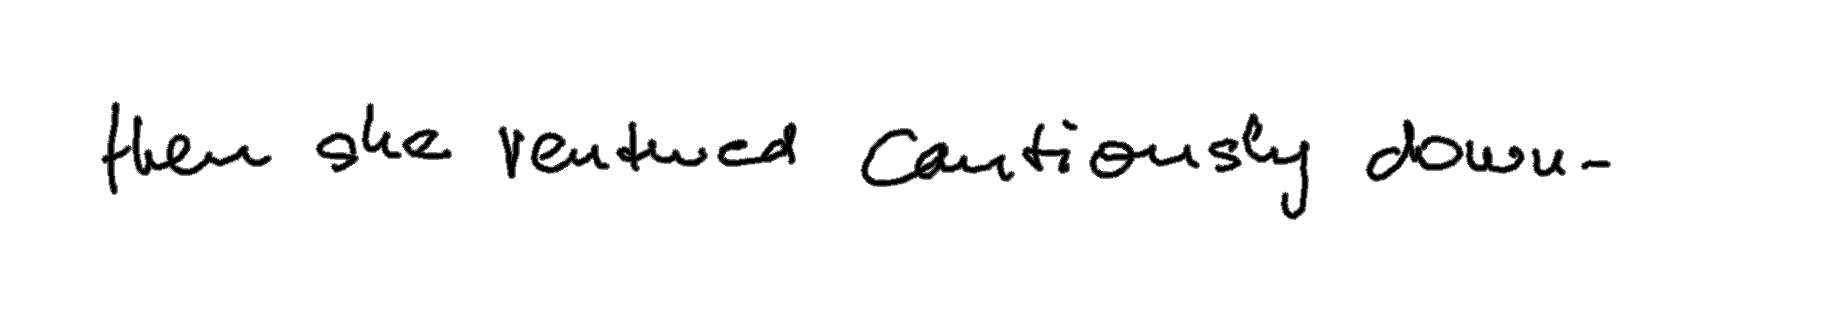 then she ventured cautiously down-